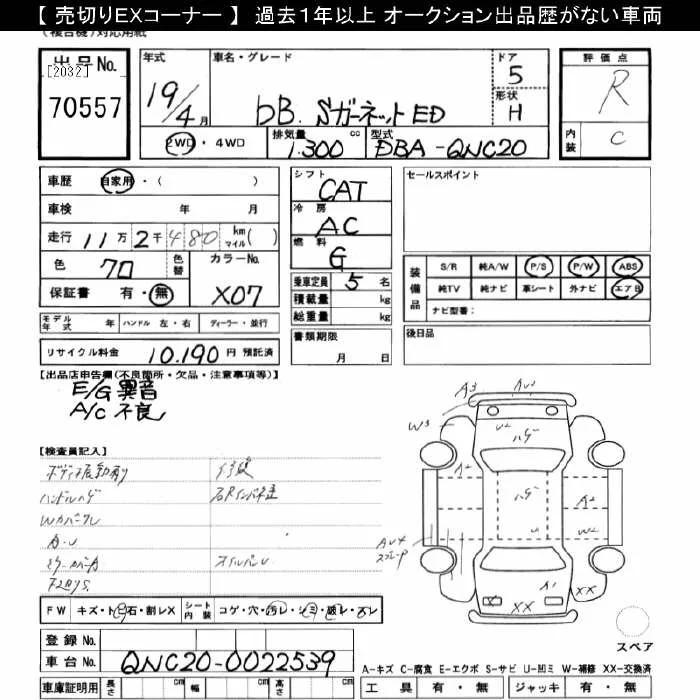 【 売切りEXコーナー 】 過去1年以上 オークション出品歴がない車両
(複合機)対応用紙
出品No.
[2032]
70557
年式
19/4月
車名・グレード
bB. Sガーネット ED
ドア
5
形状
H
評価点
R
内装
C
2WD・4WD
排気量 1.300 cc
型式 DBA-QNC20
車歴 自家用・( )
車検 年 月
走行 11万2千480 km マイル( )
色 クロ 色替
カラーNo. X07
保証書 有・無
シフト CAT
冷房 AC
燃料 G
乗車定員 5 名
積載量 kg
総重量 kg
セールスポイント
装備品
S/R 純A/W P/S P/W ABS
純TV 純ナビ 革シート 外ナビ エアB
ナビ型番:
モデル年式 年 ハンドル 左・右 ディーラー・並行
リサイクル料金 10.190 円 預託済
書類期限
月 日
後日品
【出品店申告欄(不良箇所・欠品・注意事項等)】
E/G異音
A/C 不良
【検査員記入】
ハンドルハゲ
A3
W3
U2
ハゲ
A2
A2
ハゲ
U
W2
AU4
A1
XX
XX
スペア
FW キズ・ト石・割レX シート内装 コゲ・穴・汚レ・シミ・破レ・スレ
登録No.
車台No. QNC20-0022539
車庫証明用 長さ cm 幅 cm 高さ cm
A-キズ C-腐食 E-エクボ S-サビ U-凹ミ W-補修 XX-交換済
工具 有・無 ジャッキ 有・無